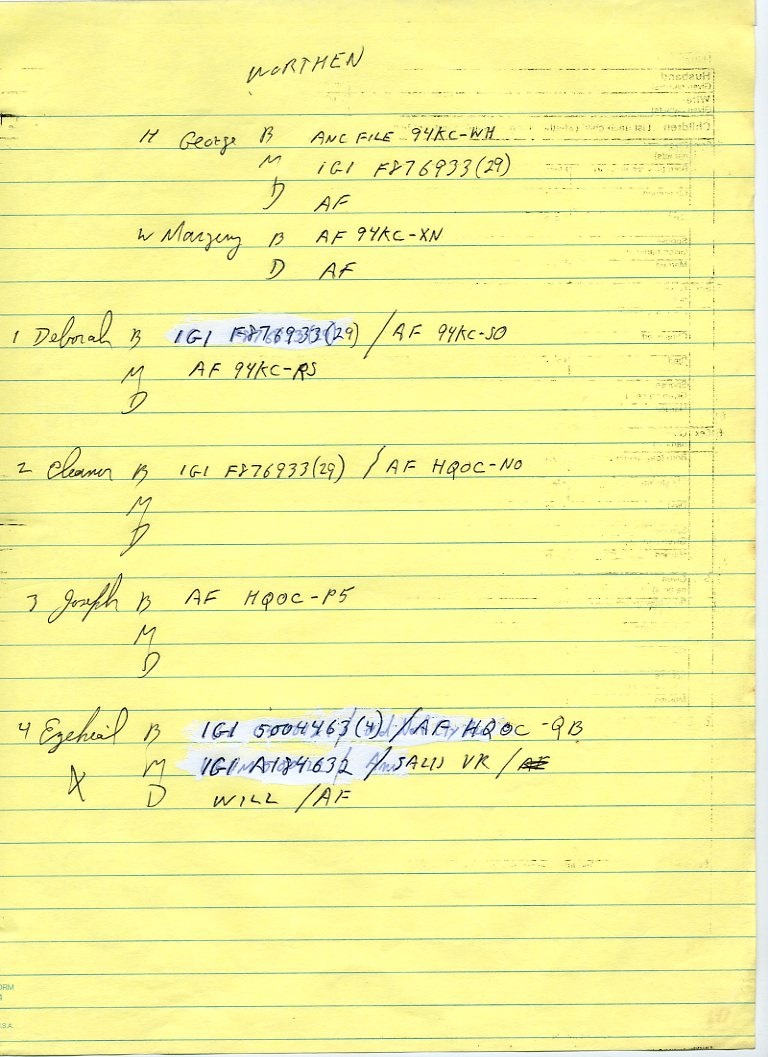 WORTHEN
H George B ANC FILE 94KC-WH
M IGI F876933(29)
D AF
W Margery B AF 94KC-XN
D AF
1 Deborah B IGI F876933(29) / AF 94KC-SO
M AF 94KC-RS
D
2 Eleanor B IGI F876933(29) / AF HQOC-NO
M
D
3 Joseph B AF HQOC-P5
M
D
4 Ezekial B IGI 5004463(4) / AF HQOC-QB
X M IGI A184632 / SALIS VR / AF
D WILL / AF